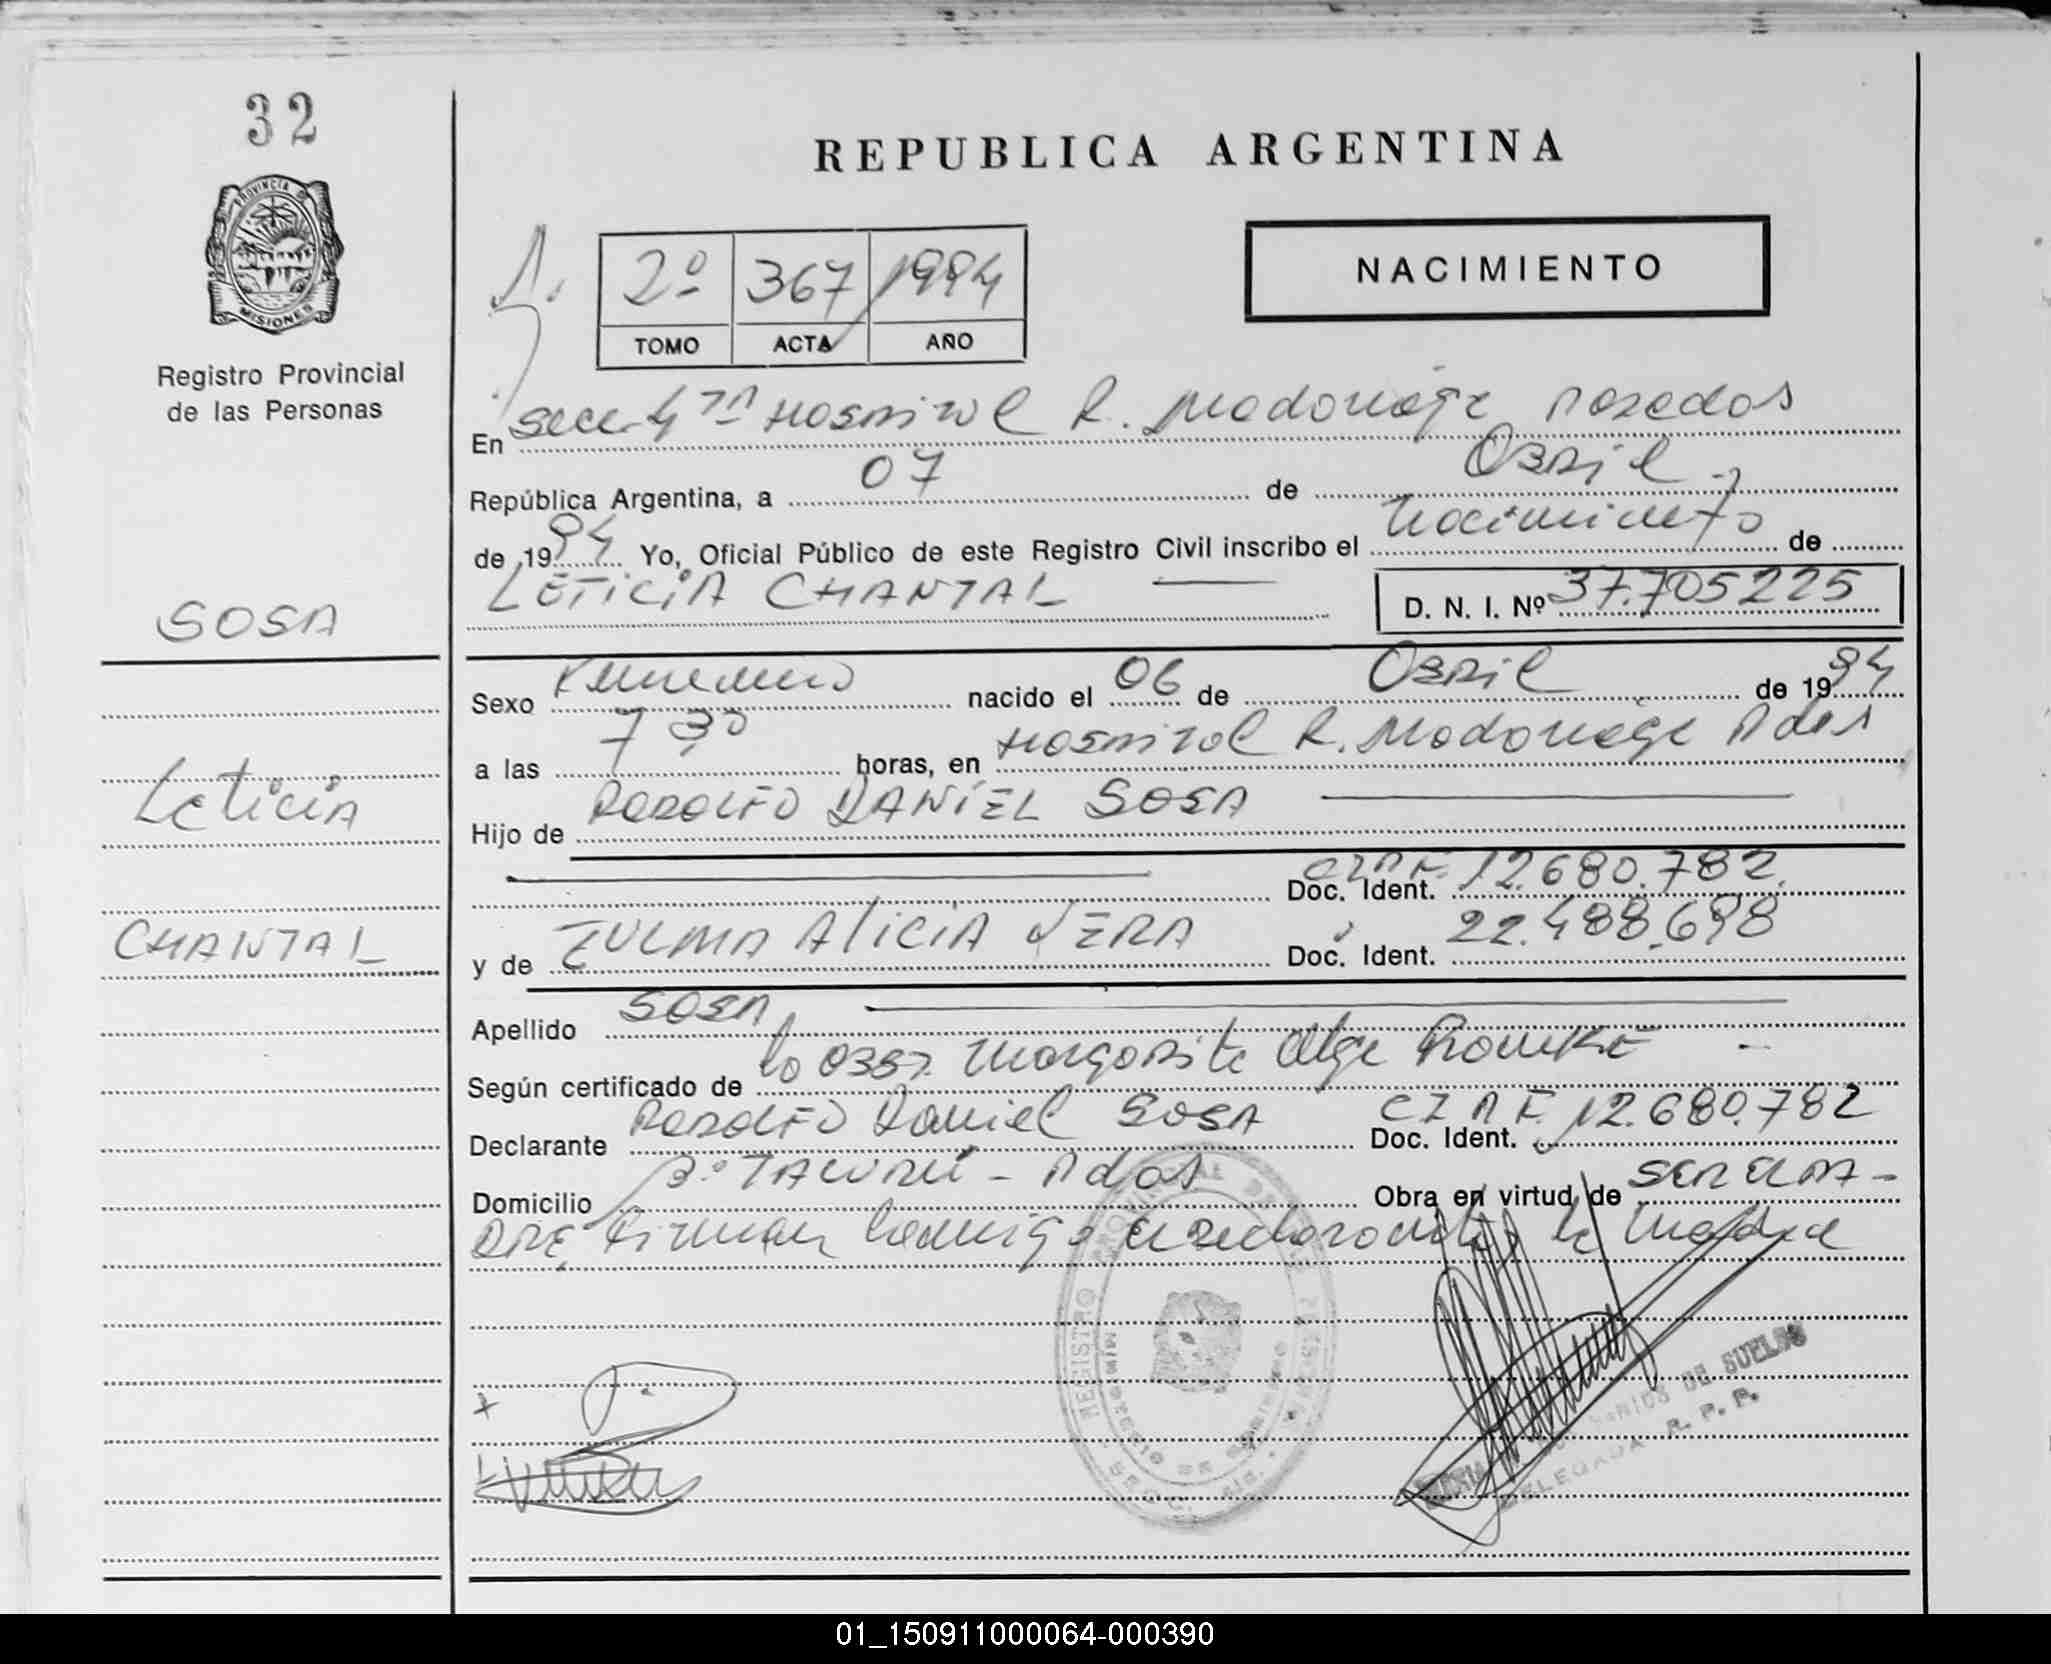 32
PROVINCIA DE
MISIONES
Registro Provincial
de las Personas
REPUBLICA ARGENTINA
NACIMIENTO
2º 367 1994
TOMO ACTA AÑO
En Secc. 4ta Hospital R. Madariaga Posadas
República Argentina, a 07 de Abril
de 1994 Yo, Oficial Público de este Registro Civil inscribo el nacimiento de
LETICIA CHANTAL D. N. I. Nº 37.705225
SOSA
Sexo Femenino nacido el 06 de Abril de 1994
a las 7 30 horas, en Hospital R. Madariaga Pdas
Leticia
Hijo de RODOLFO DANIEL SOSA
Doc. Ident. 12.680.782
CHANTAL
y de ZULMA AliCiA VERA Doc. Ident. 22.488.698
Apellido SOSA
Según certificado de la Obst. Margarita Olga
Declarante RODOLFO Daniel SOSA Doc. Ident. 12.680.782
Domicilio Bº TACURU - Pdas Obra en virtud de ser el PA-
DRE, Firman conmigo el declarante y la Madre
REGISTRO PROVINCIAL DE LAS
MINISTERIO DE GOBIERNO
DE SUELDO
DELEGADA R. P. P.
01_150911000064-000390